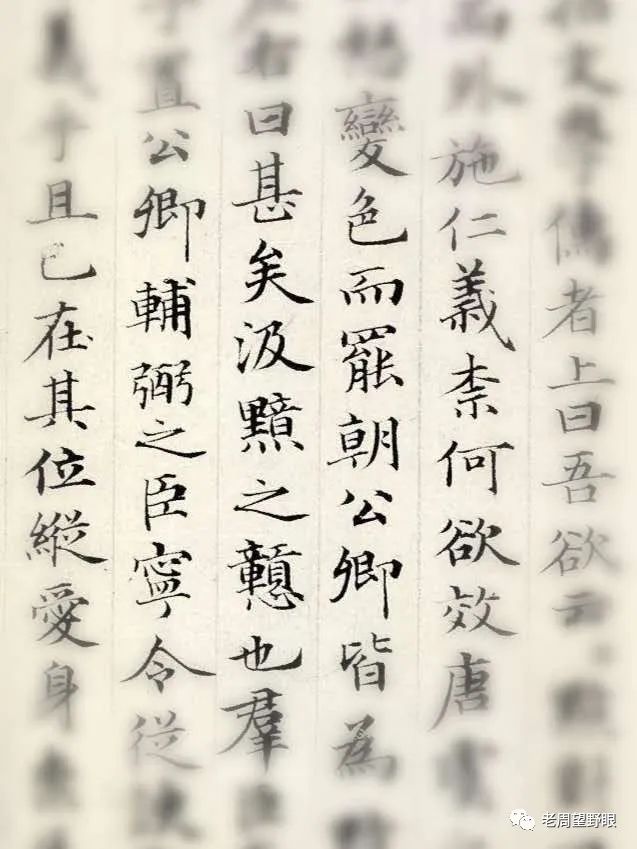 儒者上曰吾欲云
外施仁義柰何欲效唐
變色而罷朝公卿皆為
右曰甚矣汲黯之戇也羣
置公卿輔弼之臣寧令從
義乎且已在其位縱愛身
老周望野眼